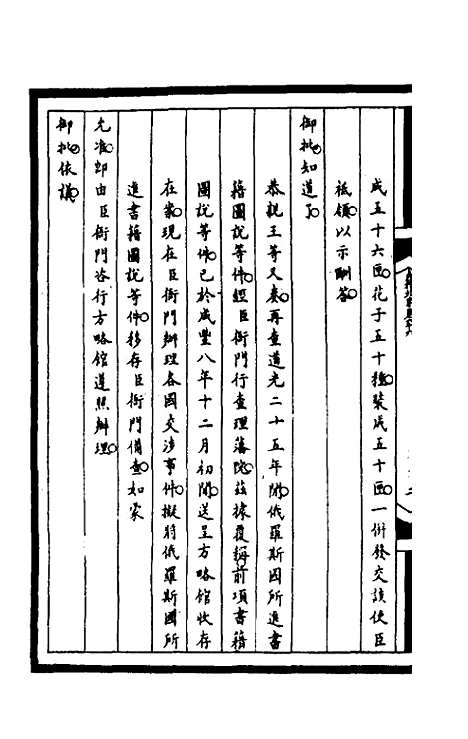 成五十六匣花子五十種裝成五十匣一併發交該使臣
祗領以示酬答
御批知道了
恭親王等又奏再查道光二十五年間俄羅斯國所進書
籍圖說等件經臣衙門行查理藩院茲據覆稱前項書籍
圖說等件已於咸豐八年十二月初間送呈方略館收存
在案現在臣衙門辦理各國交涉事件擬將俄羅斯國所
進書籍圖說等件移存臣衙門備查如蒙
允准即由臣衙門咨行方略館遵照辦理
御批依議